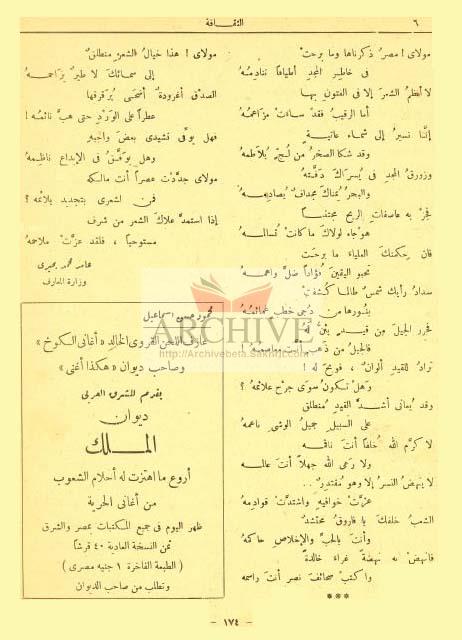 ٦
الثقافة
مولاى ! مصر ذكرناها وما برحت
فى خاطر المجد أطيافاً تنادمه
لا أنظم الشعرَ إلا فى الفتون بها
أما الرقيبُ فقد ساءت مزاعمه
إنّا نسيرُ إلى شماء عاتية
وقد شكا الصخرُ من لُجّ يلاطمه
وزورق المجد فى يسراك دفّته
والبحرُ يمناك مجداف يصادمه
فجز به عاصفات الريح مجتنباً
هوجاء لولاك ما كانت تسالمه
فان حكمتك العلياء ما برحت
تحبو اليقين فؤاداً ضلّ واعمه
سداد رأيك شمس طالما كشفت
بنورها من دجى خطب غمائمه
فحرر الجيل من قيد
فالجيل من ذهب أنت معاصمه !
تراد للقيد ألوان ، فويح له !
وهل تكون سوى جرح علائمه ؟
وقد يعانى أشدّ القيد منطلق
على السبيل جميل الوشى ناعمه
لا كرّم الله خُلقاً أنت ناقمه
ولا رعى الله جهلاً أنت عالمه
لا ينهض النسرُ إلا وهو مقتدرٌ ..
عزّت خوافيه واشتدّت قوادمه
الشعب خلفك يا فاروق محتشد
وأنت بالحبّ والإخلاص حاكمه
فانهض به نهضة غراء خالدة
واكتب صحائف نصر أنت راسمه
***
مولاى ! هذا خيال الشعر منطلق
إلى سمائك لا طيرٌ يزاحمه
الصدق أغرودة أضحى يرقرقها
عطراً على الورد حتى هبّ نائمه !
فهل يوفى نشيدى بعضَ واجبه
وهل يوفّق فى الإبداع ناظمه
مولاى جدّدت عصراً أنت مالكه
فمن لشعرى بتجديد يلائمه ؟
إذا استمدّ علاك الشعر من شرف
مستوحياً ، فلقد عزّت ملاحمه
عامر محمد بحيرى
وزارة المعارف
محمود حسن إسماعيل
عازف اللحن القروى الخالد « أغانى الكوخ »
وصاحب ديوان « هكذا أغنى »
يقدم للشرق العربى
ديوان
الملك
أروع ما اهتزت له أحلام الشعوب
من أغانى الحرية
ظهر اليوم فى جميع المكتبات بمصر والشرق
ثمن النسخة العادية ٤٠ قرشاً
( الطبعة الفاخرة ١ جنيه مصرى )
وتطلب من صاحب الديوان
ARCHIVE
http://Archivebeta.Sakhrit.com
— ١٧٤ —